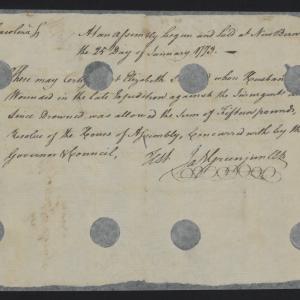 Carolina Ss At an Assembly begun and held at New Bern
the 25 Day of January 1773. —
These may Certi t Elizabeth S whose Husband
Wounded in the late Expedition against the Insurgents
Since Drowned, was allowed the Sum of Fifteen pounds,
Resolve of the House of Assembly, Concurred with by the
Governor & Council,
Test Ja Green Jun Clk